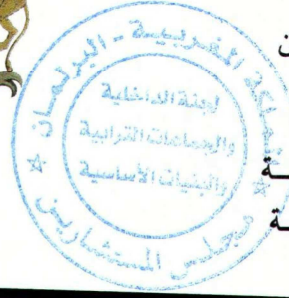 المملكة المغربية - البرلمان
لجنة الداخلية
والجماعات الترابية
والبنيات الأساسية
مجلس المستشارين